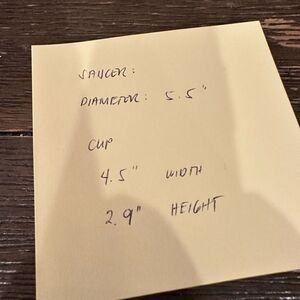 SAUCER:
DIAMETER: 5.5"
CUP
4.5" WIDTH
2.9" HEIGHT